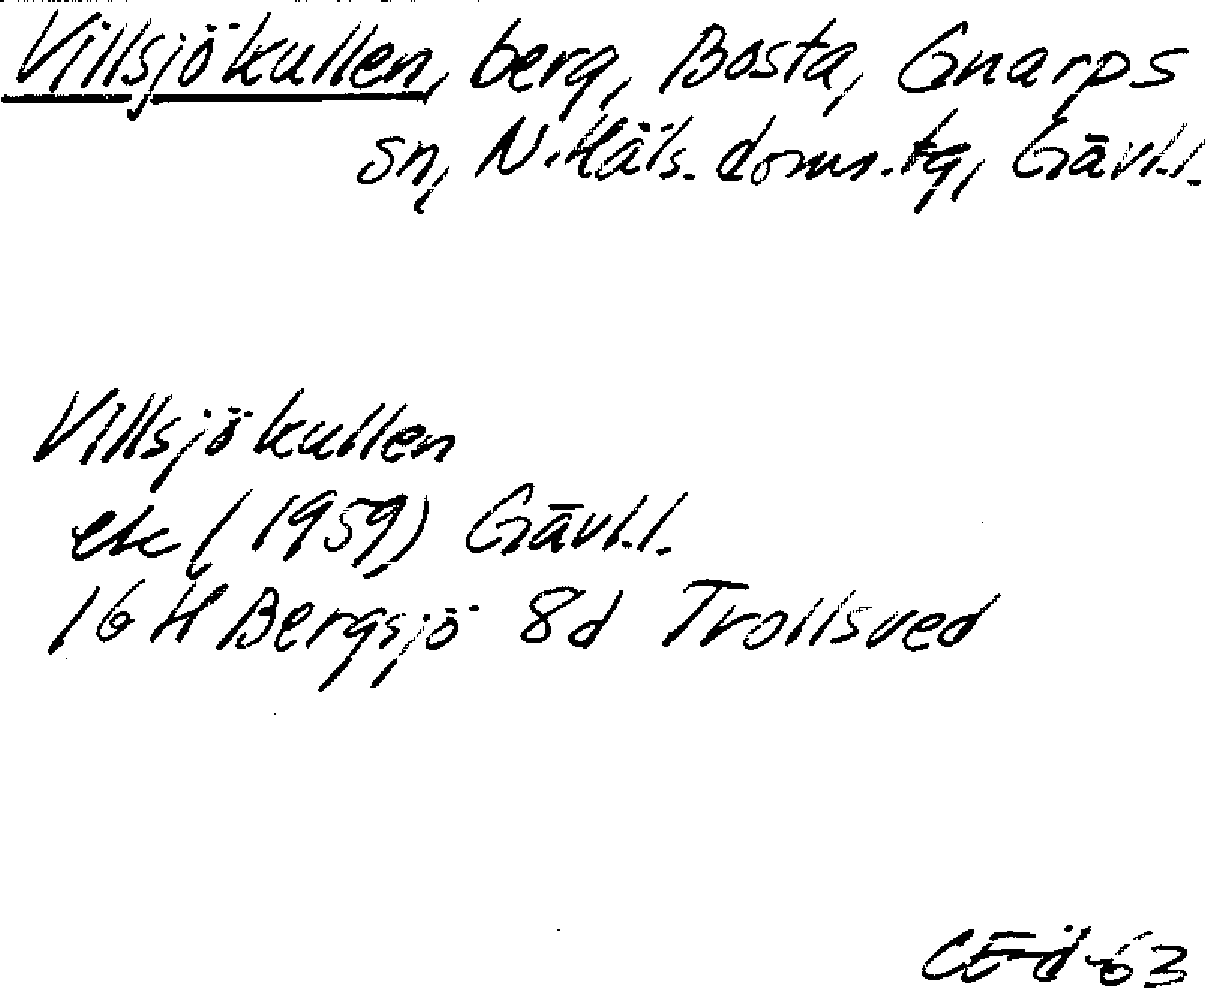 Villsjökullen, berg, Bosta, Gnarps
sn, N. Häls. doms. tg, Gävl.l.
Villsjökullen
ek (1959) Gävl.l.
16 H Bergsjö 8d Trollsved
CEÖ-63